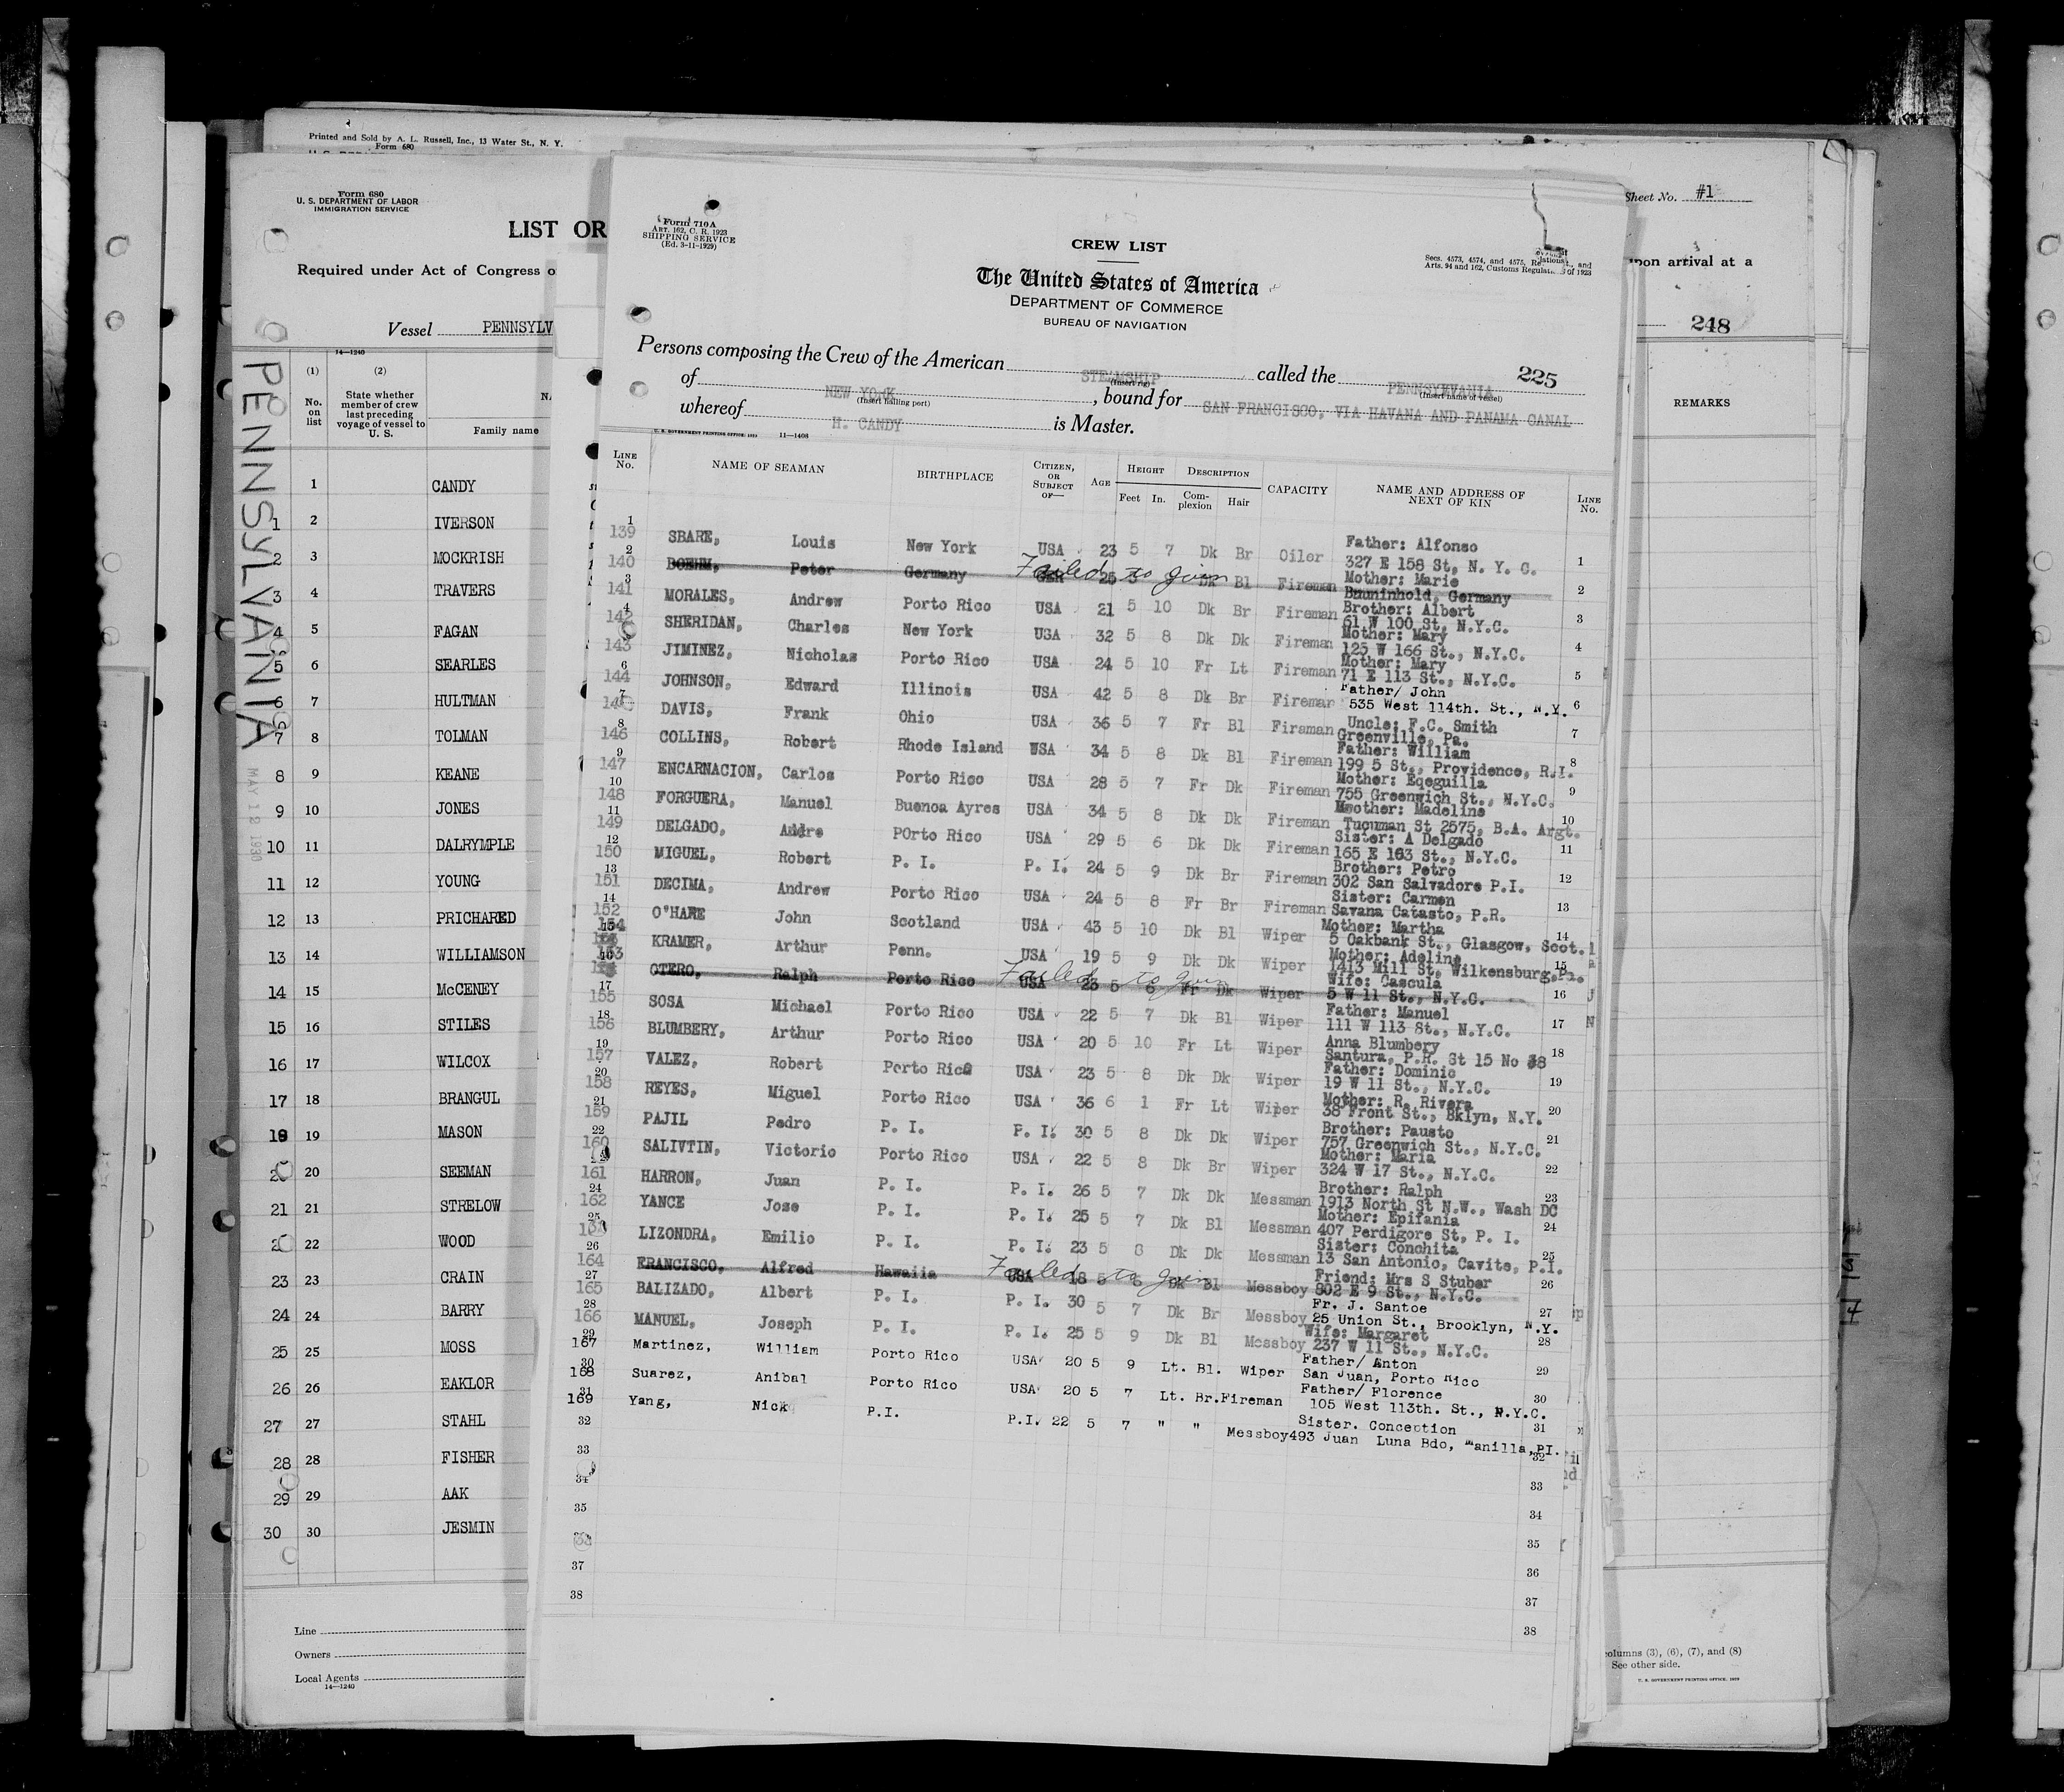 Printed and Sold by A. L. Russell, Inc., 13 Water St., N. Y.
Form 680
Form 680
U. S. DEPARTMENT OF LABOR
IMMIGRATION SERVICE
LIST OR
Required under Act of Congress o
Vessel PENNSYLV
14—1240
(1) (2)
No. on list
State whether member of crew last preceding voyage of vessel to U. S.
NA
Family name
PENNSYLVANIA
MAY 12 1930
1 CANDY
1 2 IVERSON
2 3 MOCKRISH
3 4 TRAVERS
4 5 FAGAN
5 6 SEARLES
6 7 HULTMAN
7 8 TOLMAN
8 9 KEANE
9 10 JONES
10 11 DALRYMPLE
11 12 YOUNG
12 13 PRICHARED
13 14 WILLIAMSON
14 15 McCENEY
15 16 STILES
16 17 WILCOX
17 18 BRANGUL
19 MASON
20 SEEMAN
21 21 STRELOW
22 WOOD
23 23 CRAIN
24 24 BARRY
25 25 MOSS
26 26 EAKLOR
27 27 STAHL
28 28 FISHER
29 29 AAK
30 30 JESMIN
Line
Owners
Local Agents
14—1240
Form 710A
ART. 162, C. R. 1923
SHIPPING SERVICE
(Ed. 3-11-1929)
CREW LIST
The United States of America
DEPARTMENT OF COMMERCE
BUREAU OF NAVIGATION
Secs. 4573, 4574, and 4575, and
Arts. 94 and 162, Customs of 1923
Persons composing the Crew of the American STEAMSHIP called the PENNSYLVANIA 225
(Insert rig) (Insert name of vessel)
of NEW YORK, bound for SAN FRANCISCO, VIA HAVANA AND PANAMA CANAL
(Insert hailing port)
whereof H. CANDY is Master.
U. S. GOVERNMENT PRINTING OFFICE: 1929 11—1406
LINE No. NAME OF SEAMAN BIRTHPLACE CITIZEN, OR SUBJECT OF— AGE HEIGHT Feet In. DESCRIPTION Complexion Hair CAPACITY NAME AND ADDRESS OF NEXT OF KIN LINE No.
1 139 SBARE, Louis New York USA 23 5 7 Dk Br Oiler Father: Alfonso
327 E 158 St, N. Y. C. 1
2 140 BOEHM, Peter Germany Failed to join 25 Dk Bl Fireman Mother: Marie
Germany 2
3 141 MORALES, Andrew Porto Rico USA 21 5 10 Dk Br Fireman Brother: Albert
61 W 100 St, N.Y.C. 3
4 142 SHERIDAN, Charles New York USA 32 5 8 Dk Dk Fireman Mother: Mary
125 W 166 St., N.Y.C. 4
143 JIMINEZ, Nicholas Porto Rico USA 24 5 10 Fr Lt Fireman Mother: Mary
71 E 113 St., N.Y.C. 5
6 144 JOHNSON, Edward Illinois USA 42 5 8 Dk Br Fireman Father/ John
535 West 114th. St., N.Y. 6
7 DAVIS, Frank Ohio USA 36 5 7 Fr Bl Firaman Uncle: F.C. Smith
Greenville, Pa. 7
8 146 COLLINS, Robert Rhode Island USA 34 5 8 Dk Bl Fireman Father: William
199 5 St., Providence, R.I. 8
9 147 ENCARNACION, Carlos Porto Rico USA 28 5 7 Fr Dk Fireman Mother: Eqeguilla
755 Greenwich St., N.Y.C. 9
10 148 FORGUERA, Manuel Buenoa Ayres USA 34 5 8 Dk Dk Fireman Mother: Madeline
Tucuman St 2575, B.A. Argt. 10
11 149 DELGADO, Andre POrto Rico USA 29 5 6 Dk Dk Fireman Sister: A Delgado
165 E 163 St., N.Y.C. 11
12 150 MIGUEL, Robert P. I. P. I. 24 5 9 Dk Br Fireman Brother: Petro
302 San Salvadore P.I. 12
13 151 DECIMA, Andrew Porto Rico USA 24 5 8 Fr Br Fireman Sister: Carmen
Savana Catasto, P.R. 13
14 152 O'HARE John Scotland USA 43 5 10 Dk Bl Wiper Mother: Martha
5 Oakbank St., Glasgow, Scot. 14
154 KRAMER, Arthur Penn. USA 19 5 9 Dk Dk Wiper Mother: Adeline
1413 Mill St, Wilkensburg,Pa. 15
153 OTERO, Ralph Porto Rico Failed to join USA 23 5 6 Fr Dk Wiper Wife: Cascula
5 W 11 St., N.Y.C. 16
17 155 SOSA Michael Porto Rico USA 22 5 7 Dk Bl Wiper Father: Manuel
111 W 113 St., N.Y.C. 17
18 156 BLUMBERY, Arthur Porto Rico USA 20 5 10 Fr Lt Wiper Anna Blumbery
Santura, P.R. St 15 No 38 18
19 157 VALEZ, Robert Porto Rico USA 23 5 8 Dk Dk Wiper Father: Dominic
19 W 11 St., N.Y.C. 19
20 158 REYES, Miguel Porto Rico USA 36 6 1 Fr Lt Wiper Mother: R. Rivera
38 Front St., Bklyn, N.Y. 20
21 159 PAJIL Pedro P. I. P. I. 30 5 8 Dk Dk Wiper Brother: Pausto
757 Greenwich St., N.Y.C. 21
22 160 SALIVTIN, Victorio Porto Rico USA 22 5 8 Dk Br Wiper Mother: Maria
324 W 17 St., N.Y.C. 22
161 HARRON, Juan P. I. P. I. 26 5 7 Dk Dk Messman Brother: Ralph
1913 North St N.W., Wash DC 23
24 162 YANCE Jose P. I. P. I. 25 5 7 Dk Bl Messman Mother: Epifania
407 Perdigore St, P. I. 24
25 LIZONDRA, Emilio P. I. P. I. 23 5 8 Dk Dk Messman Sister: Conchita
13 San Antonio, Cavite, P.I. 25
26 164 FRANCISCO, Alfred Hawaiia Failed to join USA 18 5 Dk Bl Messboy Friend: Mrs S Stuber
802 E 9 St., N.Y.C. 26
27 165 BALIZADO, Albert P. I. P. I. 30 5 7 Dk Br Messboy Fr. J. Santoe
25 Union St., Brooklyn, N.Y. 27
28 166 MANUEL, Joseph P. I. P. I. 25 5 9 Dk Bl Messboy Wife: Margaret
237 W 11 St., N.Y.C. 28
29 167 Martinez, William Porto Rico USA 20 5 9 Lt. Bl. Wiper Father/ Anton
San Juan, Porto Rico 29
30 168 Suarez, Anibal Porto Rico USA 20 5 7 Lt. Br. Fireman Father/ Florence
105 West 113th. St., N.Y.C. 30
31 169 Yang, Nick P.I. P.I. 22 5 7 " " Messboy Sister. Conception
493 Juan Luna Bdo, Manilla,PI. 31
32 32
33 33
34 34
35 35
36
37 37
38 38
Sheet No. #1
upon arrival at a
248
REMARKS
columns (3), (6), (7), and (8)
See other side.
U. S. GOVERNMENT PRINTING OFFICE. 1929